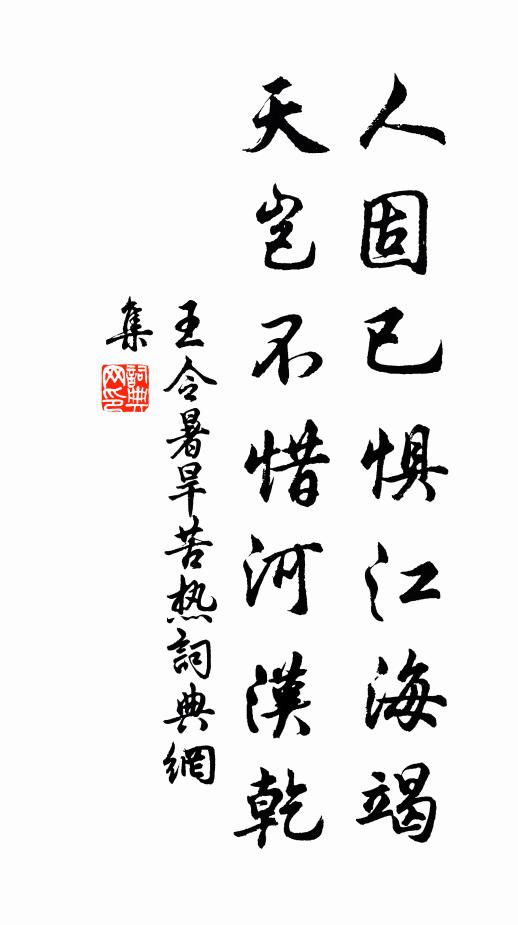 人固已惧江海竭
天岂不惜河漢乾
王令暑旱苦热詞典網
集
詞典網印